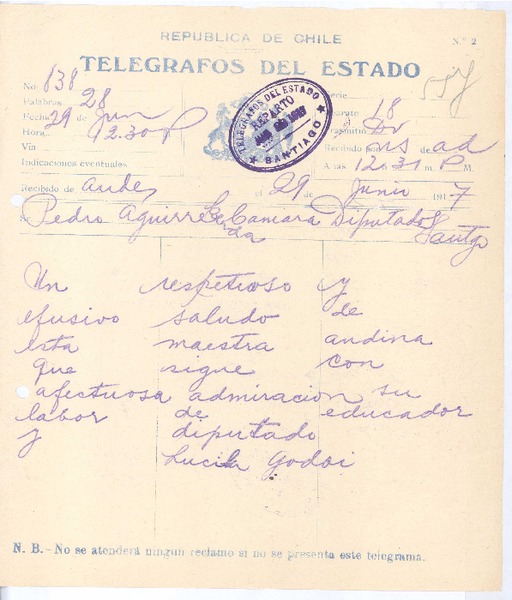 REPUBLICA DE CHILE
N.° 2
TELEGRAFOS DEL ESTADO
No. 838
Palabras 28
Fecha 29 de Jun
Hora 12.30 P
Vía
Indicaciones eventuales
TELEGRAFOS DEL ESTADO
REPARTO
SANTIAGO
18
Recibido por
A las 12.31 P M.
Recibido de Andes el 29 de Junio 1917
Sr. Pedro Aguirre Cerda Camara Diputados
Santgo
Un respetuoso y
efusivo saludo de
esta maestra andina
que sigue con
afectuosa admiracion su
labor de educador
y diputado
Lucila Godoi
N. B.- No se atenderá ningun reclamo si no se presenta este telegrama.